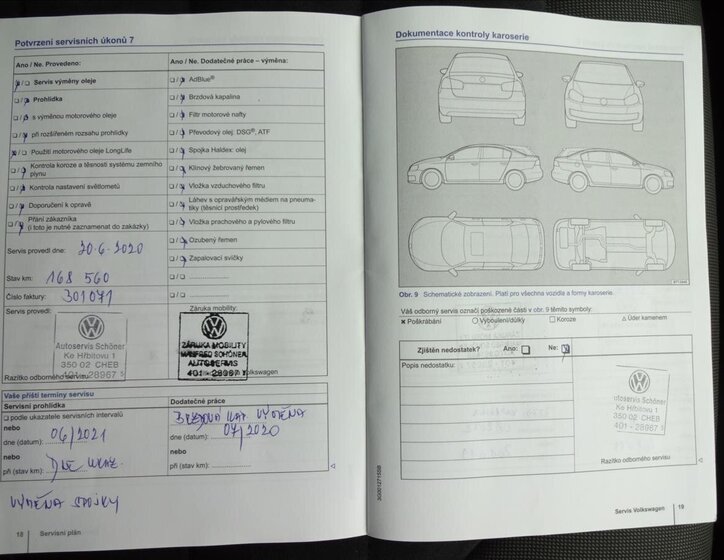 Potvrzení servisních úkonů 7
Ano / Ne. Provedeno:
☒ / ☐ Servis výměny oleje
☐ / ☒ Prohlídka
☐ / ☒ s výměnou motorového oleje
☐ / ☒ při rozšířeném rozsahu prohlídky
☒ / ☐ Použití motorového oleje LongLife
☐ / ☒ Kontrola koroze a těsnosti systému zemního
plynu
☐ / ☒ Kontrola nastavení světlometů
☐ / ☒ Doporučení k opravě
☐ / ☒ Přání zákazníka
(i toto je nutné zaznamenat do zakázky)
Servis provedl dne: 30.6.2020
Stav km: 168 560
Číslo faktury: 301071
Servis provedl:
Autoservis Schöner
Ke Hřbitovu 1
350 02 CHEB
401 - 28967 5
Razítko odborného servisu
Ano / Ne. Dodatečné práce – výměna:
☐ / ☒ AdBlue®
☐ / ☒ Brzdová kapalina
☐ / ☒ Filtr motorové nafty
☐ / ☒ Převodový olej: DSG®, ATF
☐ / ☒ Spojka Haldex: olej
☐ / ☒ Klínový žebrovaný řemen
☐ / ☒ Vložka vzduchového filtru
☐ / ☒ Láhev s opravářským médiem na pneuma-
tiky (těsnicí prostředek)
☐ / ☒ Vložka prachového a pylového filtru
☐ / ☒ Ozubený řemen
☐ / ☒ Zapalovací svíčky
☐ / ☐ ....................
☐ / ☐ ....................
Záruka mobility:
ZÁRUKA MOBILITY
MANFRED SCHÖNER
AUTOSERVIS
401 - 28967
Volkswagen
Vaše příští termíny servisu
Servisní prohlídka
☐ podle ukazatele servisních intervalů
nebo
dne (datum): 06/2021
nebo
při (stav km): DLE UKAZ.
Dodatečné práce
BRZDOVÁ KAP. VÝMĚNA
dne (datum): 07/2020
nebo
při (stav km):
VÝMĚNA SPOJKY
18 | Servisní plán
Dokumentace kontroly karoserie
Obr. 9 Schematické zobrazení. Platí pro všechna vozidla a formy karoserie.
Váš odborný servis označí poškozené části v obr. 9 těmito symboly:
✖ Poškrábání ○ Vyboulení/důlky ☐ Koroze △ Úder kamenem
Zjištěn nedostatek? Ano: ☐ Ne: ☒
Popis nedostatku:
utoservis Schöner
Ke Hřbitovu 1
350 02 CHEB
401 - 28967 5
Razítko odborného servisu
Servis Volkswagen | 19